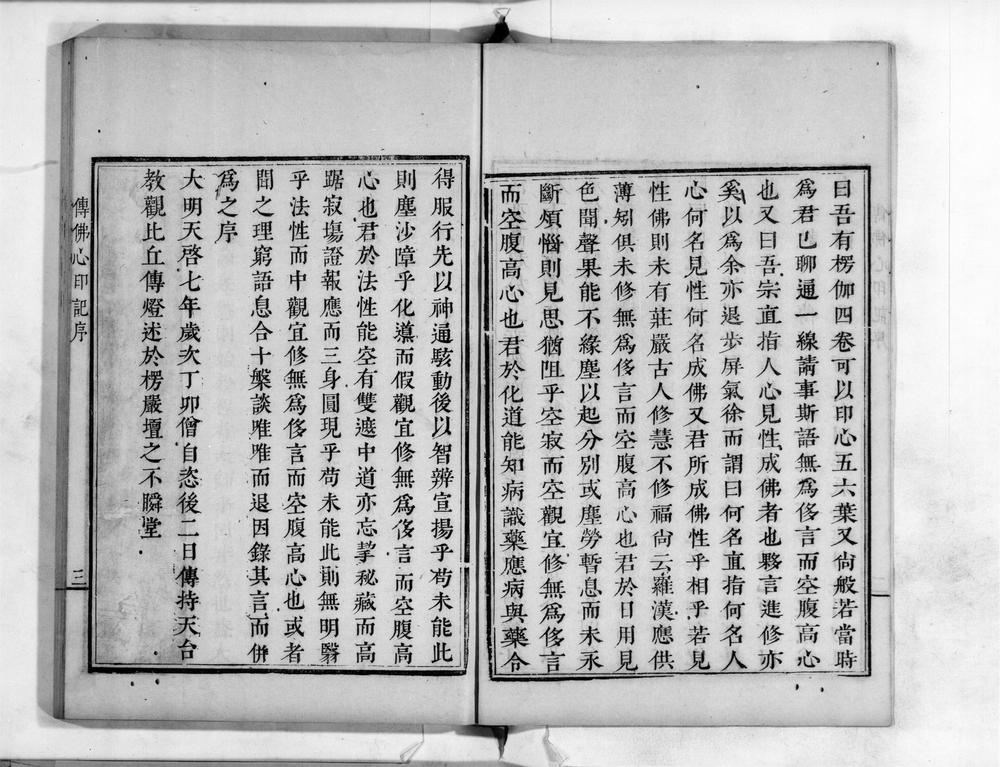 曰吾有楞伽四卷可以印心五六葉又尙般若當時
爲君已聊通一線請事斯語無爲侈言而空腹高心
也又曰吾宗直指人心見性成佛者也夥言進修亦
奚以爲余亦退步屏氣徐而謂曰何名直指何名人
心何名見性何名成佛又君所成佛性乎相乎若見
性佛則未有莊嚴古人修慧不修福尙云羅漢應供
薄矧俱未修無爲侈言而空腹高心也君於日用見
色聞聲果能不緣塵以起分別或塵勞暫息而未永
斷煩惱則見思猶阻乎空寂而空觀宜修無爲侈言
而空腹高心也君於化道能知病識藥應病與藥令
得服行先以神通駭動後以智辨宣揚乎苟未能此
則塵沙障乎化導而假觀宜修無爲侈言而空腹高
心也君於法性能空有雙遮中道亦忘挈秘藏而高
踞寂場證報應而三身圓現乎苟未能此則無明翳
乎法性而中觀宜修無爲侈言而空腹高心也或者
聞之理窮語息合十槃談唯唯而退因錄其言而併
爲之序
大明天啓七年歲次丁卯僧自恣後二日傳持天台
教觀比丘傳燈述於楞嚴壇之不瞬堂
傳佛心印記序
三